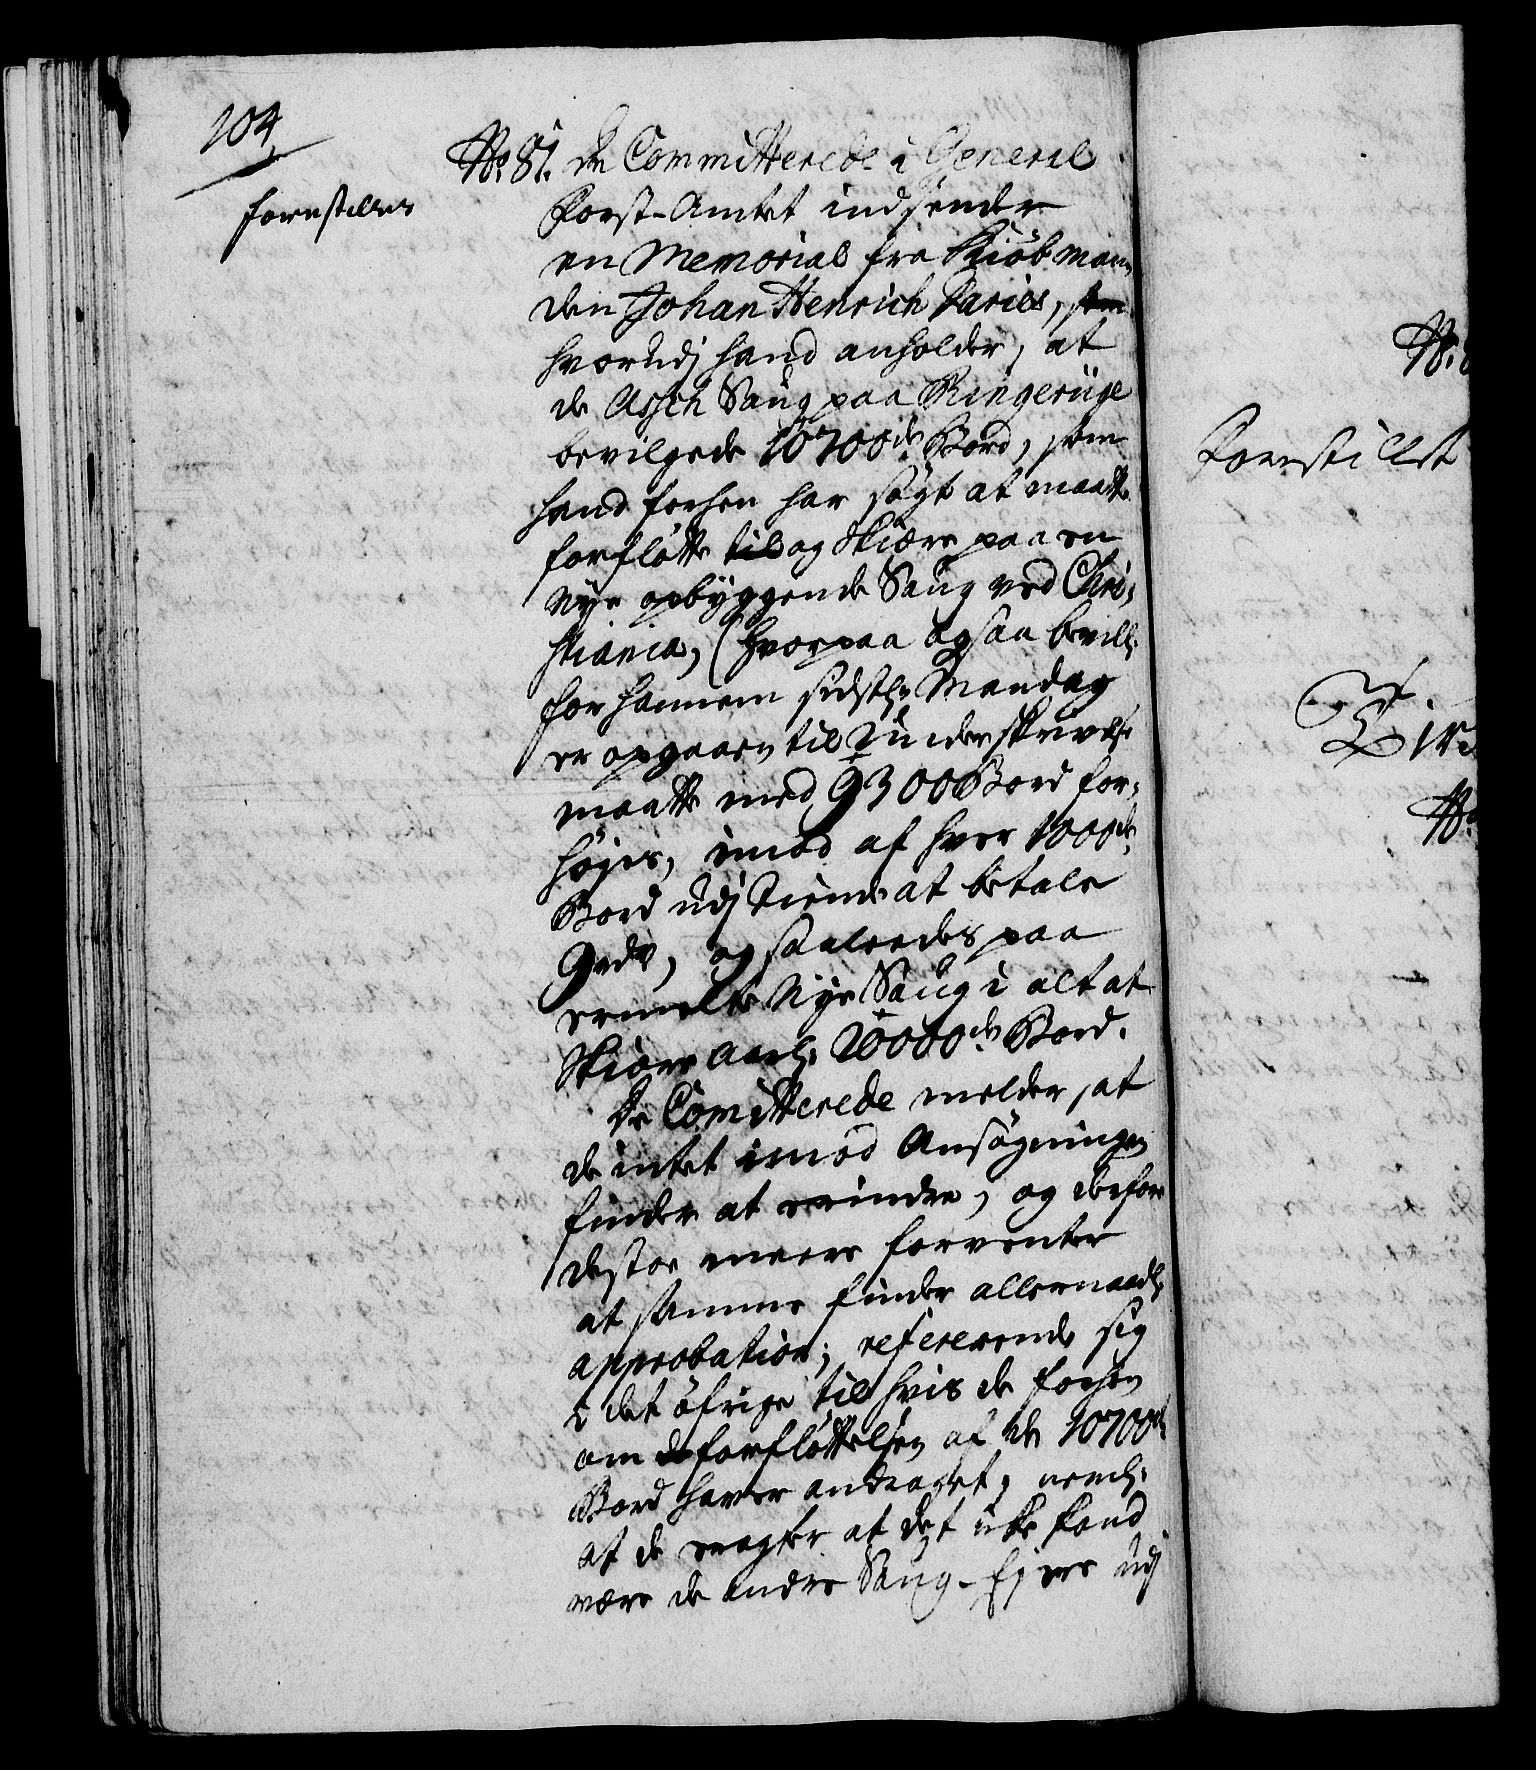 104
forestilles
No. 81. De Committerede i General
Forst-Amtet indsender
en Memorial fra Kiöbman
den Johan Henrich Daries, som
hvorudj hand anholder, at
de Asch Saug paa Ringerüge
bevilgede 10700de Bord, som
hand forhen har søgt at maatte
forfløtte til og Skiære paa en
Nye opbyggende Saug ved Chri-
stiania, (hvorpaa ogsaa bevill:
for hannem sidstl: Mandag
er opgaaen til Underskrivelse
maatte med 9300 Bord for-
høyes, imod af hver 1000de
Bord udj Tiende at betale
9 rdr, og saaledes paa
ermelte Nye Saug i alt at
Skiære Aarl: 20000de Bord.
De Comitterede melder, at
de intet imod Ansøgningen
finder at erindre, og derfore
destoe meere forventer
at samme finder allernaadl:
approbation; refererende sig
i det öfrige til hvis de forhen
om de forfløttelsen af de 10700de
Bord haver andraget, neml:
at de eragter at det icke kand
være de andre Saug-Ejere udj
No.
Forestillet
No.